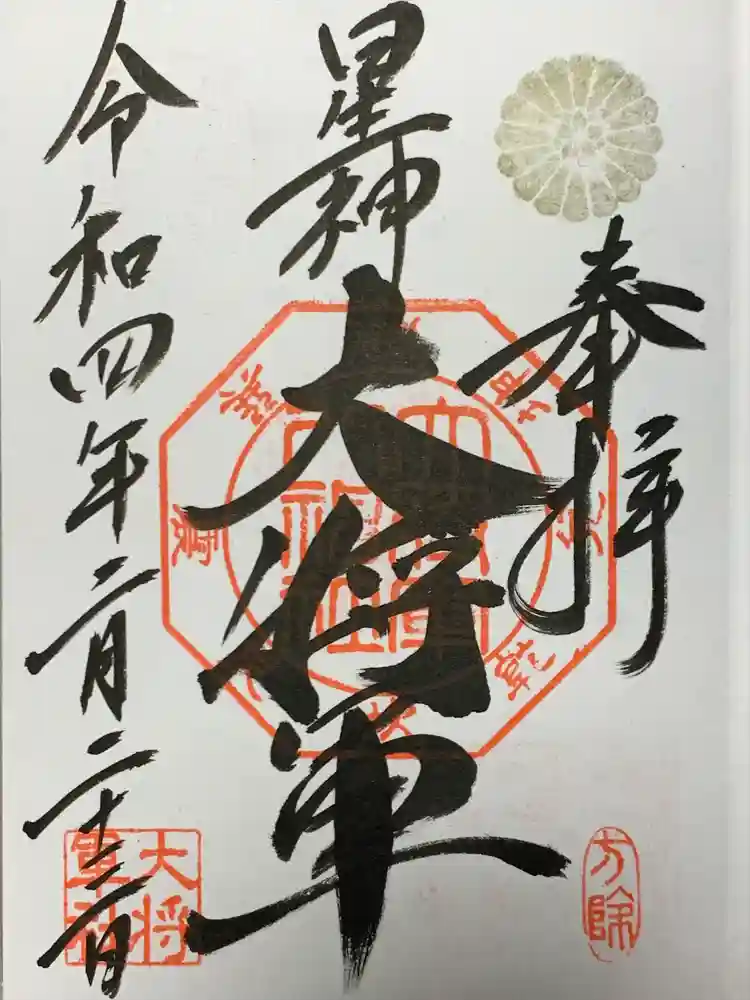 奉拝
星神
大将軍
令和四年二月二十三日
方除
大将軍社